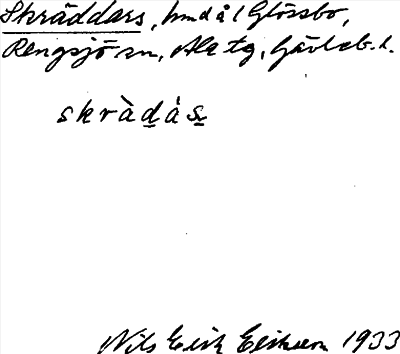 Skräddars, hmd å l Glössbo,
Rengsjö sn, Ala tg, Gävleb. l.
skràdás
Nils Erik Eriksson 1933